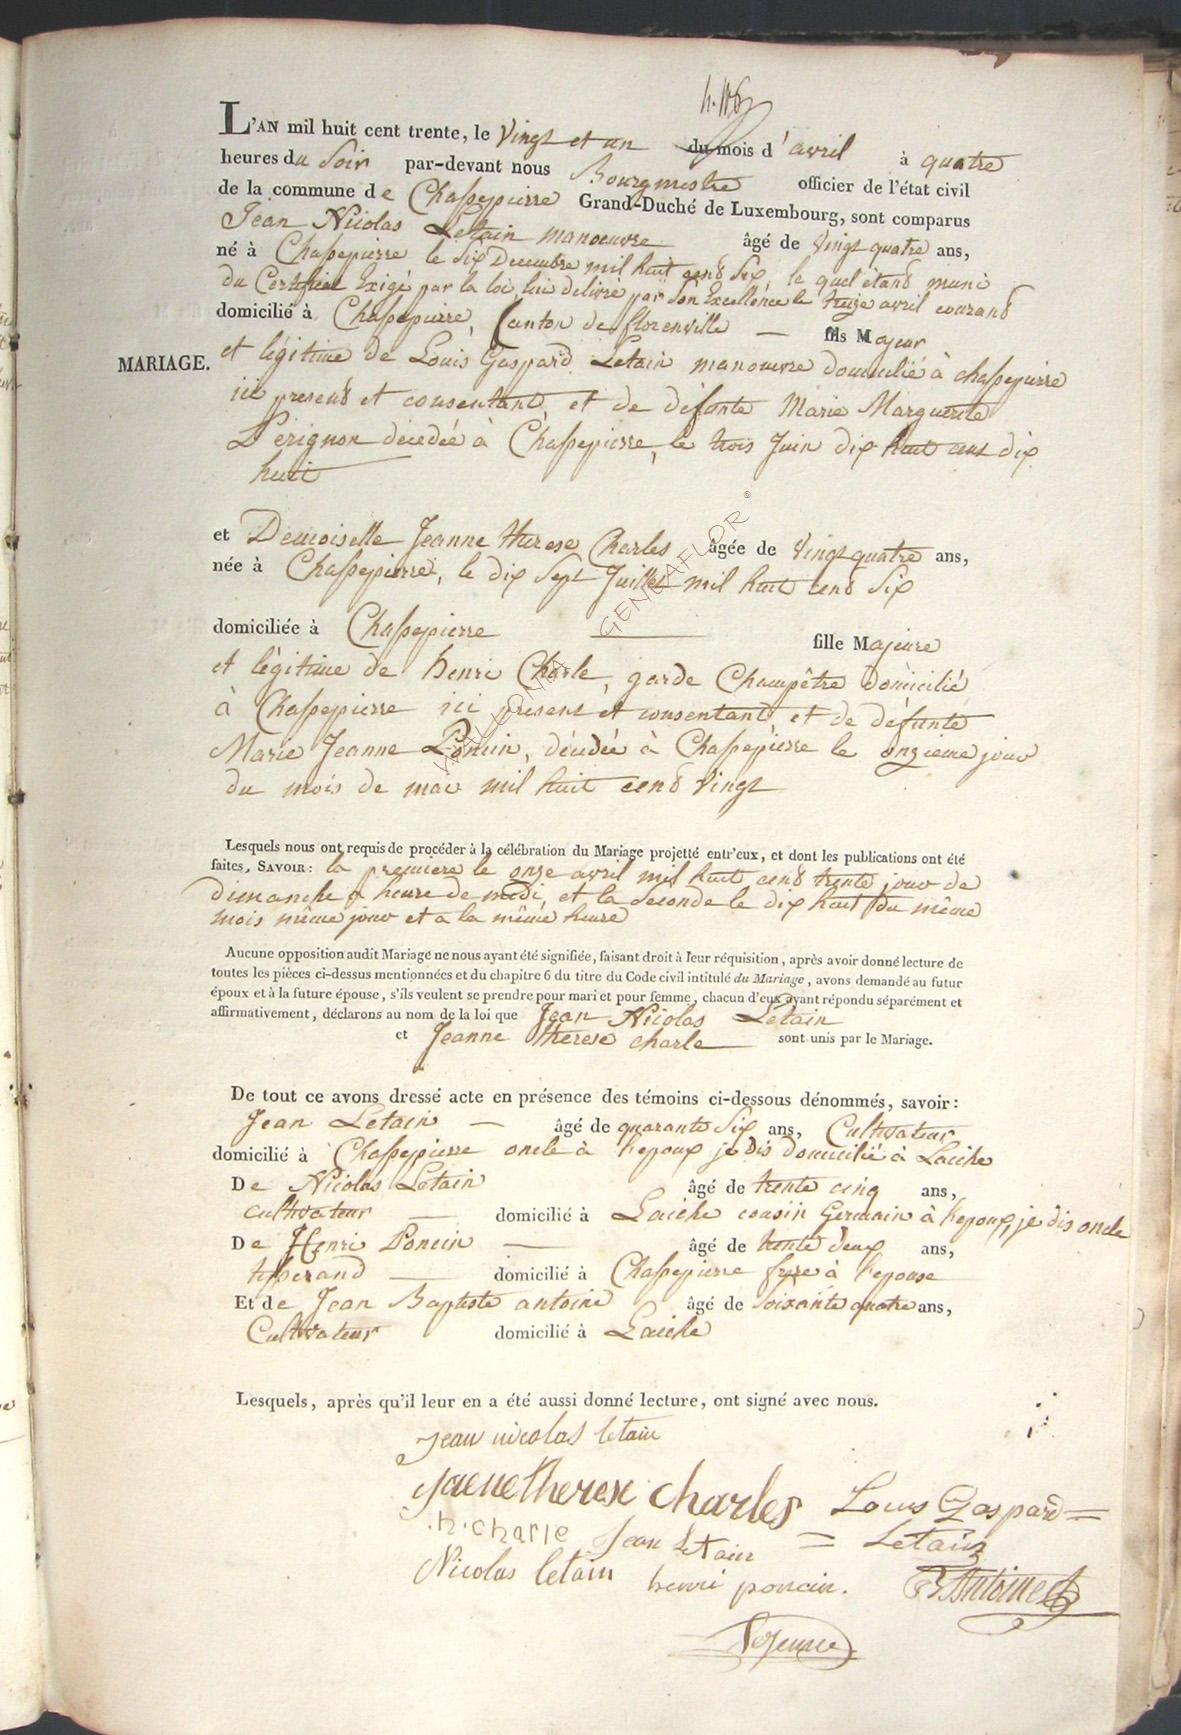 L'AN mil huit cent trente, le Vingt et un du mois d'avril à quatre
heures du Soir par-devant nous Bourgmestre officier de l'état civil
de la commune de Chassepierre Grand-Duché de Luxembourg, sont comparus
Jean Nicolas Letain manoeuvre âgé de Vingt quatre ans,
né à Chassepierre le Six Decembre mil huit cend Six, le quel étand muni
du Certificat Exigé par la loi, lui delivré par Son Excellence le treize avril courand
domicilié à Chassepierre, Canton de florenville — fils Majeur
MARIAGE.
et légitime de Louis Gaspard Letain manouvre domicilié à chassepierre
ici presend et consentant, et de défonte Marie Marguerite
Pérignon décédée à Chassepierre, le trois Juin dix huit cent dix
huit
et Demoiselle Jeanne therese Charles âgée de Vingt quatre ans,
née à Chassepierre, le dix Sept Juillet mil huit cend Six
domiciliée à Chassepierre — fille Majeure
et légitime de henri Charle, garde Champêtre domicilié
à Chassepierre ici present et consentand, et de défunte
Marie Jeanne Poncin, décédée à Chassepierre le onzieme jour
du mois de mai mil huit cend Vingt
Lesquels nous ont requis de procéder à la célébration du Mariage projetté entr'eux, et dont les publications ont été
faites, SAVOIR: la premiere le onze avril mil huit cend trente jour de
dimanche a heure de midi, et la Seconde le dix huit du même
mois même jour et a la même heure
Aucune opposition audit Mariage ne nous ayant été signifiée, faisant droit à leur réquisition, après avoir donné lecture de
toutes les pièces ci-dessus mentionnées et du chapitre 6 du titre du Code civil intitulé du Mariage, avons demandé au futur
époux et à la future épouse, s'ils veulent se prendre pour mari et pour femme, chacun d'eux ayant répondu séparément et
affirmativement, déclarons au nom de la loi que Jean Nicolas Letain
et Jeanne therese charle sont unis par le Mariage.
De tout ce avons dressé acte en présence des témoins ci-dessous dénommés, savoir:
Jean Letain — âgé de quarante Six ans, Cultivateur
domicilié à Chassepierre oncle à l'epoux je dis domicilié à Laiche
De Nicolas Letain âgé de trente cinq ans,
cultivateur — domicilié à Laiche cousin Germain à l'epoux, je dis oncle
De Henri Poncin — âgé de trente deux ans,
tisserand — domicilié à Chassepierre frere à l'epouse
Et de Jean Baptiste antoine âgé de Soixante quatre ans,
Cultivateur domicilié à Laiche
Lesquels, après qu'il leur en a été aussi donné lecture, ont signé avec nous.
Jean nicolas letain
Jaenetherese charles Louis Gaspard=
h. charle Jean Letain = Letain
Nicolas letain henri poncin. Antoine
Lejeune
GENEAFLOR